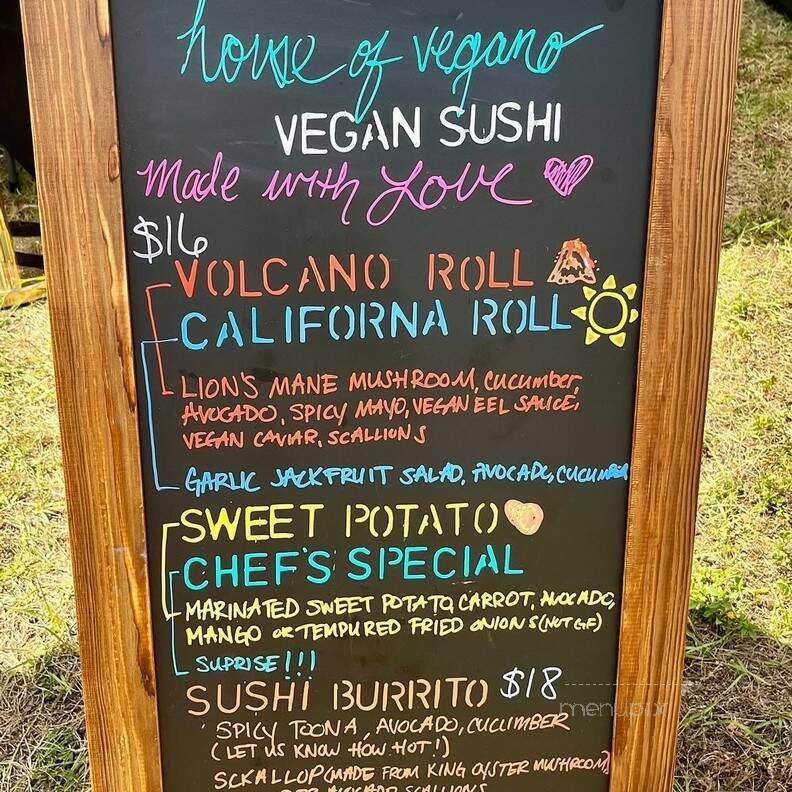 house of vegano
VEGAN SUSHI
Made with Love
$16
VOLCANO ROLL
CALIFORNA ROLL
LION'S MANE MUSHROOM, CUCUMber,
AVOCADO, SPICY MAYO, VEGAN EEL SAUCE,
VEGAN CAVIAR, SCALLIONS
GARLIC JACKFRUIT SALAD, AVOCADO, CUCUMBER
SWEET POTATO
CHEF'S SPECIAL
MARINATED SWEET POTATO, CARROT, AVOCADO,
MANGO OR TEMPURED FRIED ONIONS (NOT GF)
SUPRISE!!!
SUSHI BURRITO $18
menupix
SPICY TOONA, AVOCADO, CUCUMBER
(LET US KNOW HOW HOT!)
SCKALLOP (MADE FROM KING OYSTER MUSHROOM)
AVOCADO SCALLIONS